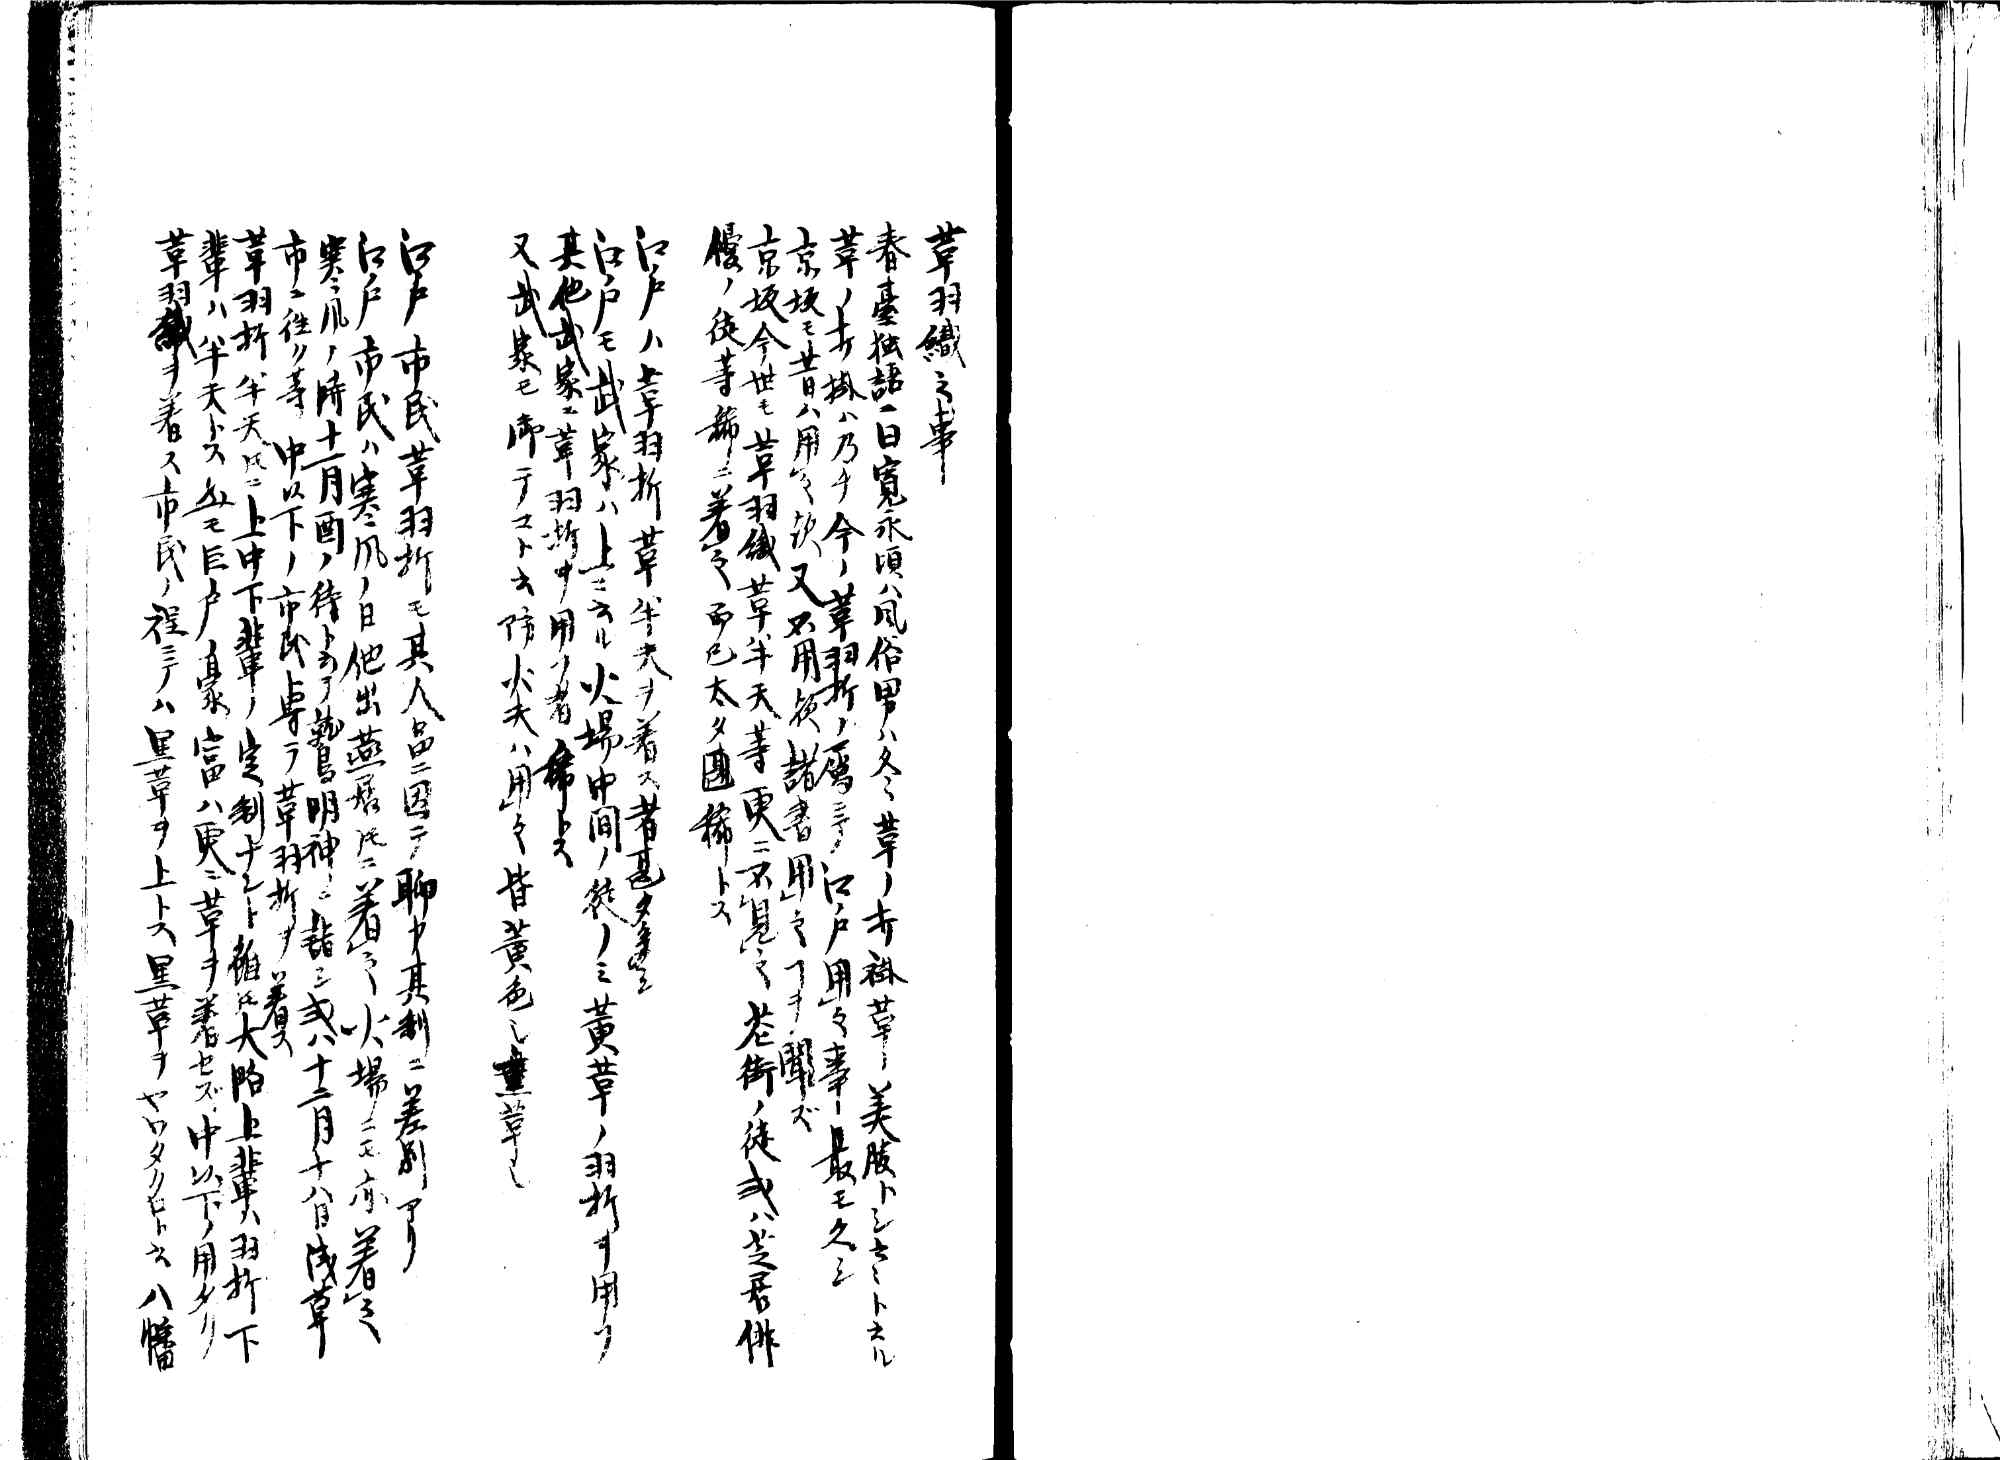 革羽織之事
春臺独語ニ曰寛永頃ハ風俗男ハ冬ハ革ノ袴掛革ノ美服トシ云々ト云ル
革ノ袴掛ハ乃チ今ノ革羽折ノ属ニテ江戸用之事最モ久シ
京坂モ昔ハ用之歟又不用歟諸書用之コヲ聞ズ
京坂今世モ革羽織革半天等更ニ不見之花街ノ徒或ハ芝居俳
優ノ徒等稀ニ着之而已太タ稀トス
江戸ハ士革羽折革半天ヲ着ス者甚タ多シ
江戸モ武家ハ上ニ云ル火場中間ノ徒ノミ黄革ノ羽折ヲ用フ
其他武家ニ革羽折ヲ用フ者稀トス
又武家モ御テコト云防火夫ハ用之皆黄色也薫革也
江戸市民革羽折モ其人品ニ因テ聊カ其制ニ差別アリ
江戸市民ハ寒風ノ日他出燕居トモニ着之火場ニモ亦着之
寒風ノ時十一月酉ノ待ト云テ鷲明神ニ詣シ或ハ十二月十八日浅草
市ニ往ク等中以下ノ市民専ラ革羽折ヲ着ス
革羽折半天トモニ上中下輩ノ定制ナシト雖トモ大略上輩ハ羽折下
輩ハ半天トス然モ巨戸ノ豪富ハ更ニ革ヲ着セズ中以下ノ用タリ
革羽織ヲ着ス市民ノ裎ニテハ黒革ヲ上トス黒革ヲヤロタクヒト云八幡